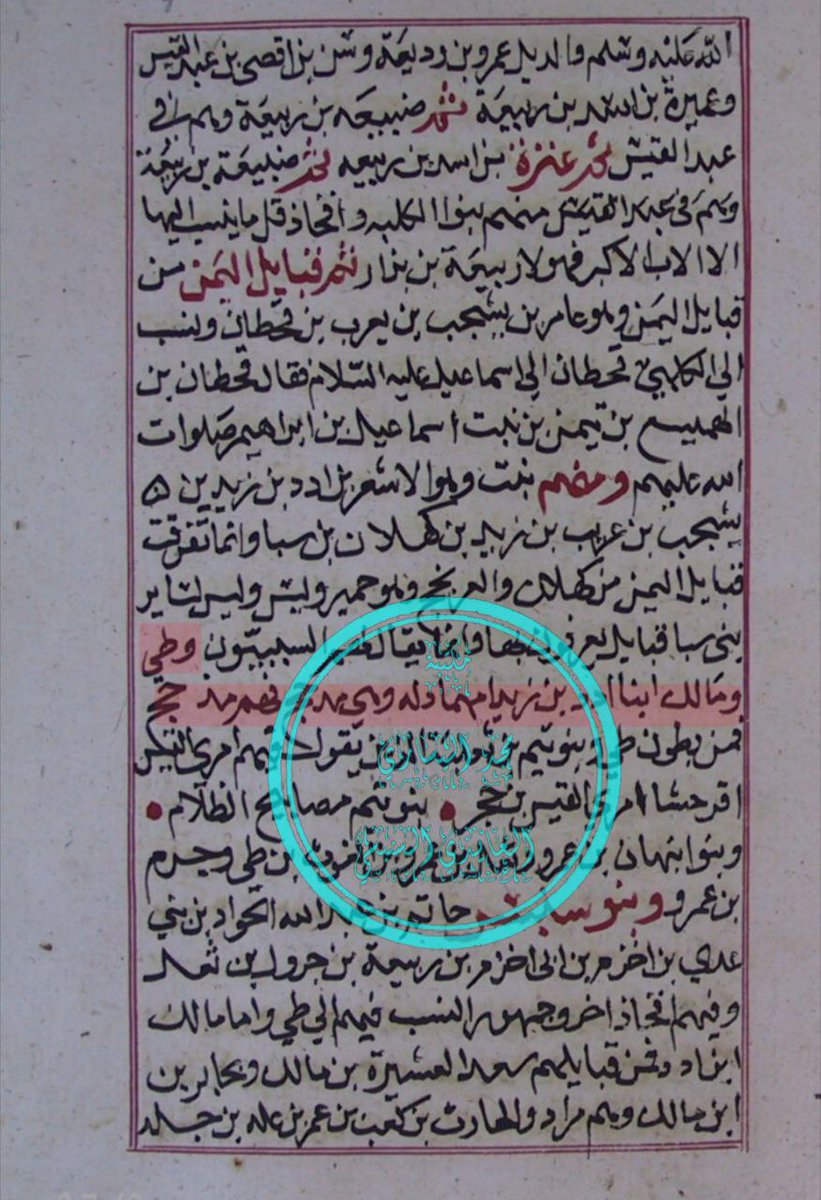 الله عليه وسلم والديل عمرو بن وديعة وشن بن اقصى بن عبد القيس
وعميرة بن اسد بن ربيعة ثم ضبيعه بن ربيعة وهم في
عبد القيس ثم عنزة بن اسد بن ربيعه ثم ضبيعة بن ربيعة
وهم في عبد القيس منهم بنوا الكلبه وافخاذ قل ما ينسب اليها
الا الاب الاكبر فهولا ربيعة بن نزار ثم قبايل اليمن من
قبايل اليمن وهو عامر بن يشجب بن يعرب بن قحطان ونسب
الي قحطان الي اسماعيل عليه السلام فقال قحطان بن
الهميسع بن تيمن بن نبت اسماعيل بن ابراهيم صلوات
الله عليهم ومنهم نبت وهو الاشعر بن ادد بن زيد بن
يشجب بن عريب بن زيد بن كهلان بن سبا وانما تفرقت
قبايل اليمن من كهلان والعرنجج وهو حمير وليس وليس لساير
بني سبا قبايل السبييون وطي
ومالك ابنا ادد بن زيد امهما دله وهي مدحج فهم مدحج
فمن بطون طي بنو تيم يقول امرى القيس
اقر حشا امرى القيس بن حجر • بنو تيم مصابيح الظلام •
وبنوا نبهان بن عمرو بن الغوث بن طي وجرم
بن عمرو وبنو حاتم بن عبد الله الجواد بن بني
عدي بن اخزم بن ابي اخزم بن ربيعة بن جرول بن ثعل
وفيهم افخاذ اخر وجمهور النسب فيهم الي طي واما مالك
بن ادد فمن قبايلهم سعد العشيرة بن مالك ويحابر بن
ابن مالك وهم مراد والحارث بن كعب بن عمر بن عله بن جلد
مكتبة